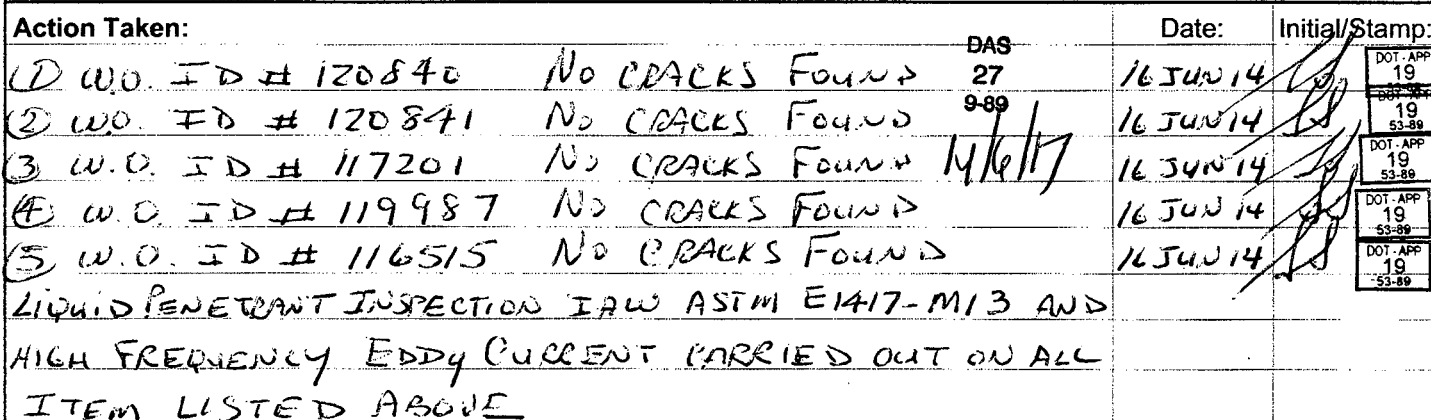 Action Taken: Date: Initial/Stamp:
① W.O. ID # 120840 No CRACKS FOUND DAS 27 9-89 16 JUN 14 DOT-APP 19
② W.O. ID # 120841 No CRACKS FOUND 16 JUN 14 DOT-APP 19 53-89
③ W.O. ID # 117201 No CRACKS FOUND 16 JUN 14 DOT-APP 19 53-89
④ W.O. ID # 119987 No CRACKS FOUND 16 JUN 14 DOT-APP 19 53-89
⑤ W.O. ID # 116515 No CRACKS FOUND 16 JUN 14 DOT-APP 19 53-89
LIQUID PENETRANT INSPECTION IAW ASTM E1417-M13 AND
HIGH FREQUENCY EDDY CURRENT CARRIED OUT ON ALL
ITEM LISTED ABOVE